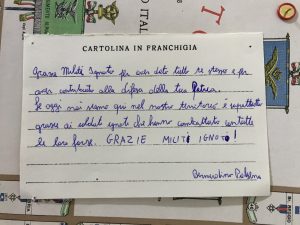 CARTOLINA IN FRANCHIGIA
Grazie Milite Ignoto per aver dato tutto te stesso e per
aver contribuito alla difesa della tua Patria.
Se oggi noi siamo qui nel nostro territorio è soprattutto
grazie ai soldati ignoti che hanno combattuto con tutte
le loro forze. GRAZIE MILITE IGNOTO!